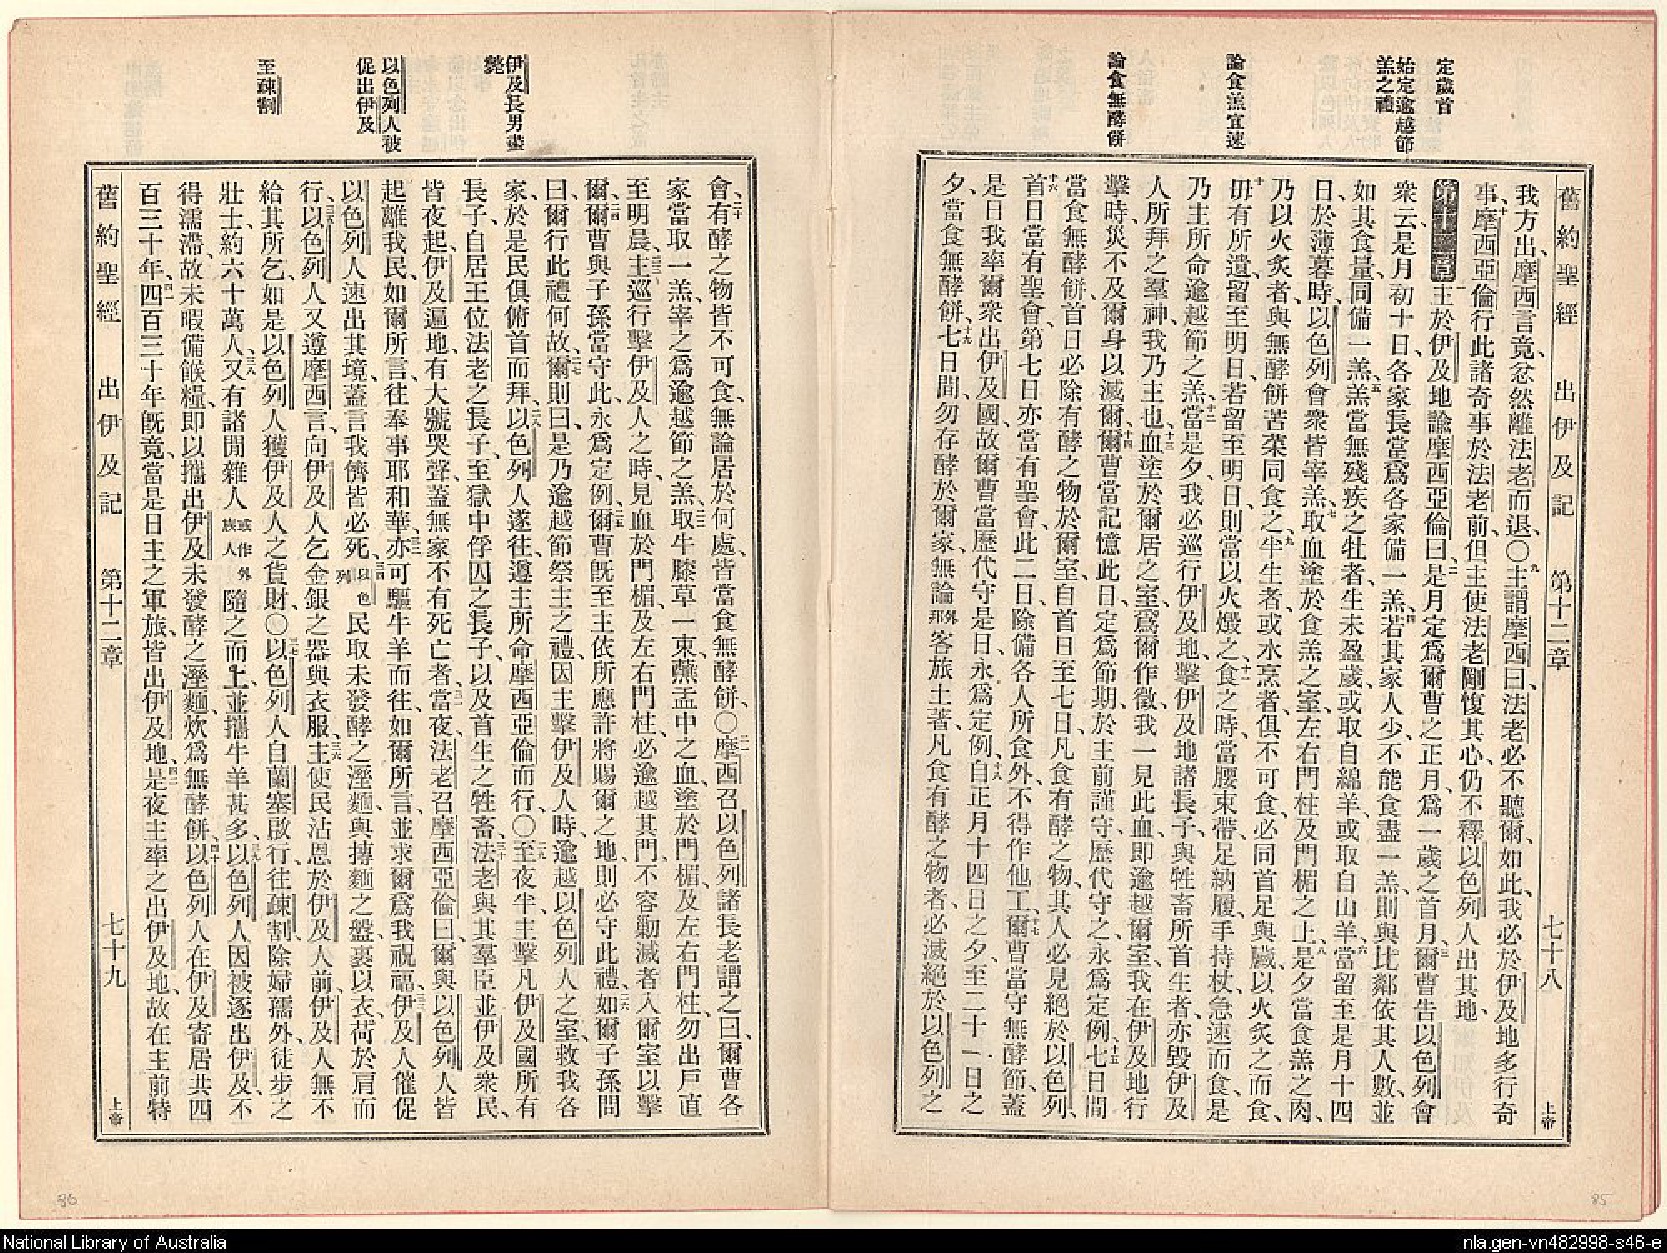 定歲首
始定逾越節
羔之禮
論食羔宜速
論食無酵餅
舊約聖經 出伊及記 第十二章 七十八 上帝
我方出、摩西言竟、忿然離法老而退、〇九主謂摩西曰、法老必不聽爾、如此、我必於伊及地多行奇
事、十摩西亞倫行此諸奇事於法老前、但主使法老剛愎其心、仍不釋以色列人出其地
第十二章 一主於伊及地諭摩西亞倫曰、二是月定爲爾曹之正月、爲一歲之首月、三爾曹告以色列會
衆云、是月初十日、各家長當爲各家備一羔、四若其家人少、不能食盡一羔、則與比鄰依其人數、並
如其食量、同備一羔、五羔當無殘疾之牡者、生未盈歲、或取自綿羊、或取自山羊、六當留至是月十四
日、於薄暮時、以色列會衆皆宰羔、七取血塗於食羔之室、左右門柱及門楣之上、八是夕當食羔之肉、
乃以火炙者、與無酵餅苦菜同食之、九半生者、或水烹者、俱不可食、必同首足與臟、以火炙之而食、
十毋有所遺、留至明日、若留至明日、則當以火燬之、十一食之時、當腰束帶、足納履、手持杖、急速而食、是
乃主所命逾越節之羔、十二當是夕、我必巡行伊及地、擊伊及地諸長子、與牲畜所首生者、亦毀伊及
人所拜之羣神、我乃主也、十三血塗於爾居之室、爲爾作徵、我一見此血、即逾越爾室、我在伊及地行
擊時、災不及爾身以滅爾、十四爾曹當記憶此日、定爲節期、於主前謹守、歷代守之、永爲定例、十五七日間
當食無酵餅、首日必除有酵之物於爾室、自首日至七日、凡食有酵之物、其人必見絕於以色列、
十六首日當有聖會、第七日亦當有聖會、此二日、除備各人所食外、不得作他工、十七爾曹當守無酵節、蓋
是日我率爾衆出伊及國、故爾曹當歷代守是日、永爲定例、十八自正月十四日之夕、至二十一日之
夕、當食無酵餅、十九七日間、勿存酵於爾家、無論外邦客旅土著、凡食有酵之物者、必滅絕於以色列之
伊及長男盡
斃
以色列人被
促出伊及
至疎割
會、二十有酵之物皆不可食、無論居於何處、皆當食無酵餅、〇二一摩西召以色列諸長老謂之曰、爾曹各
家當取一羔、宰之爲逾越節之羔、二二取牛膝草一束、蘸盂中之血、塗於門楣及左右門柱、勿出戶直
至明晨、二三主巡行擊伊及人之時、見血於門楣及左右門柱、必逾越其門、不容勦滅者入爾室以擊
爾、二四爾曹與子孫當守此、永爲定例、二五爾曹既至主依所應許將賜爾之地、則必守此禮、二六如爾子孫問
曰、爾行此禮何故、二七爾則曰、是乃逾越節祭主之禮、因主擊伊及人時、逾越以色列人之室、救我各
家、於是民俱俯首而拜、二八以色列人遂往、遵主所命摩西亞倫而行、〇二九至夜半、主擊凡伊及國所有
長子、自居王位法老之長子、至獄中俘囚之長子、以及首生之牲畜、三十法老與其羣臣、並伊及衆民、
皆夜起、伊及遍地、有大號哭聲、蓋無家不有死亡者、三一當夜、法老召摩西亞倫曰、爾與以色列人皆
起離我民、如爾所言、往奉事耶和華、三二亦可驅牛羊而往、如爾所言、並求爾爲我祝福、三三伊及人催促
以色列人速出其境、蓋言我儕皆必死、三四以色列民取未發酵之溼麵、與摶麵之盤、裹以衣、荷於肩而
行、三五以色列人又遵摩西言、向伊及人乞金銀之器與衣服、三六主使民沾恩於伊及人前、伊及人無不
給其所乞、如是以色列人獲伊及人之貨財、〇三七以色列人自蘭塞啟行、往疎割、除婦孺外、徒步之
壯士、約六十萬人、三八又有諸閒雜人或作外族人隨之而上、並攜牛羊甚多、三九以色列人因被逐出伊及、不
得濡滯、故未暇備餱糧、即以攜出伊及未發酵之溼麵、炊爲無酵餅、四十以色列人在伊及寄居、共四
百三十年、四一四百三十年既竟、當是日主之軍旅、皆出伊及地、四二是夜主率之出伊及地、故在主前特
舊約聖經 出伊及記 第十二章 七十九 上帝
36
85
National Library of Australia
nla.gen-vn482998-s46-e